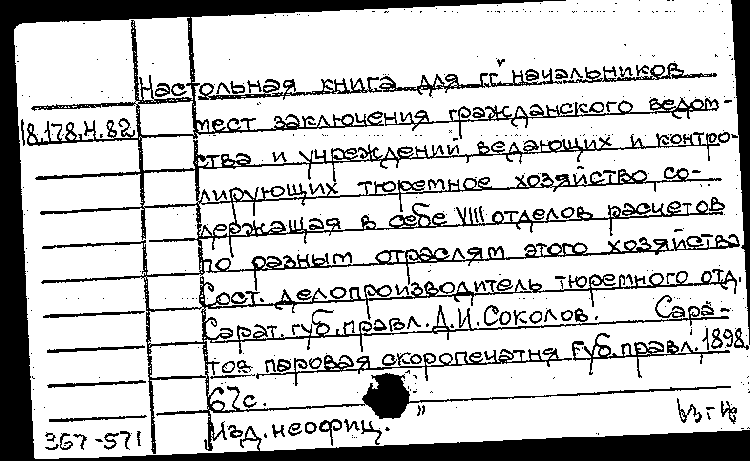 Настольная книга для г.г. начальников
18.178.4.82 мест заключения гражданского ведом-
ства и учреждений, ведающих и контро-
лирующих тюремное хозяйство, со-
держащая в себе VIII отделов расчетов
по разным отраслям этого хозяйства.
Сост. делопроизводитель тюремного отд.
Сарат. губ. правл. Д.И. Соколов. Сара-
тов, паровая скоропечатня Губ. правл. 1898.
67с.
367-571 Изд. неофиц.